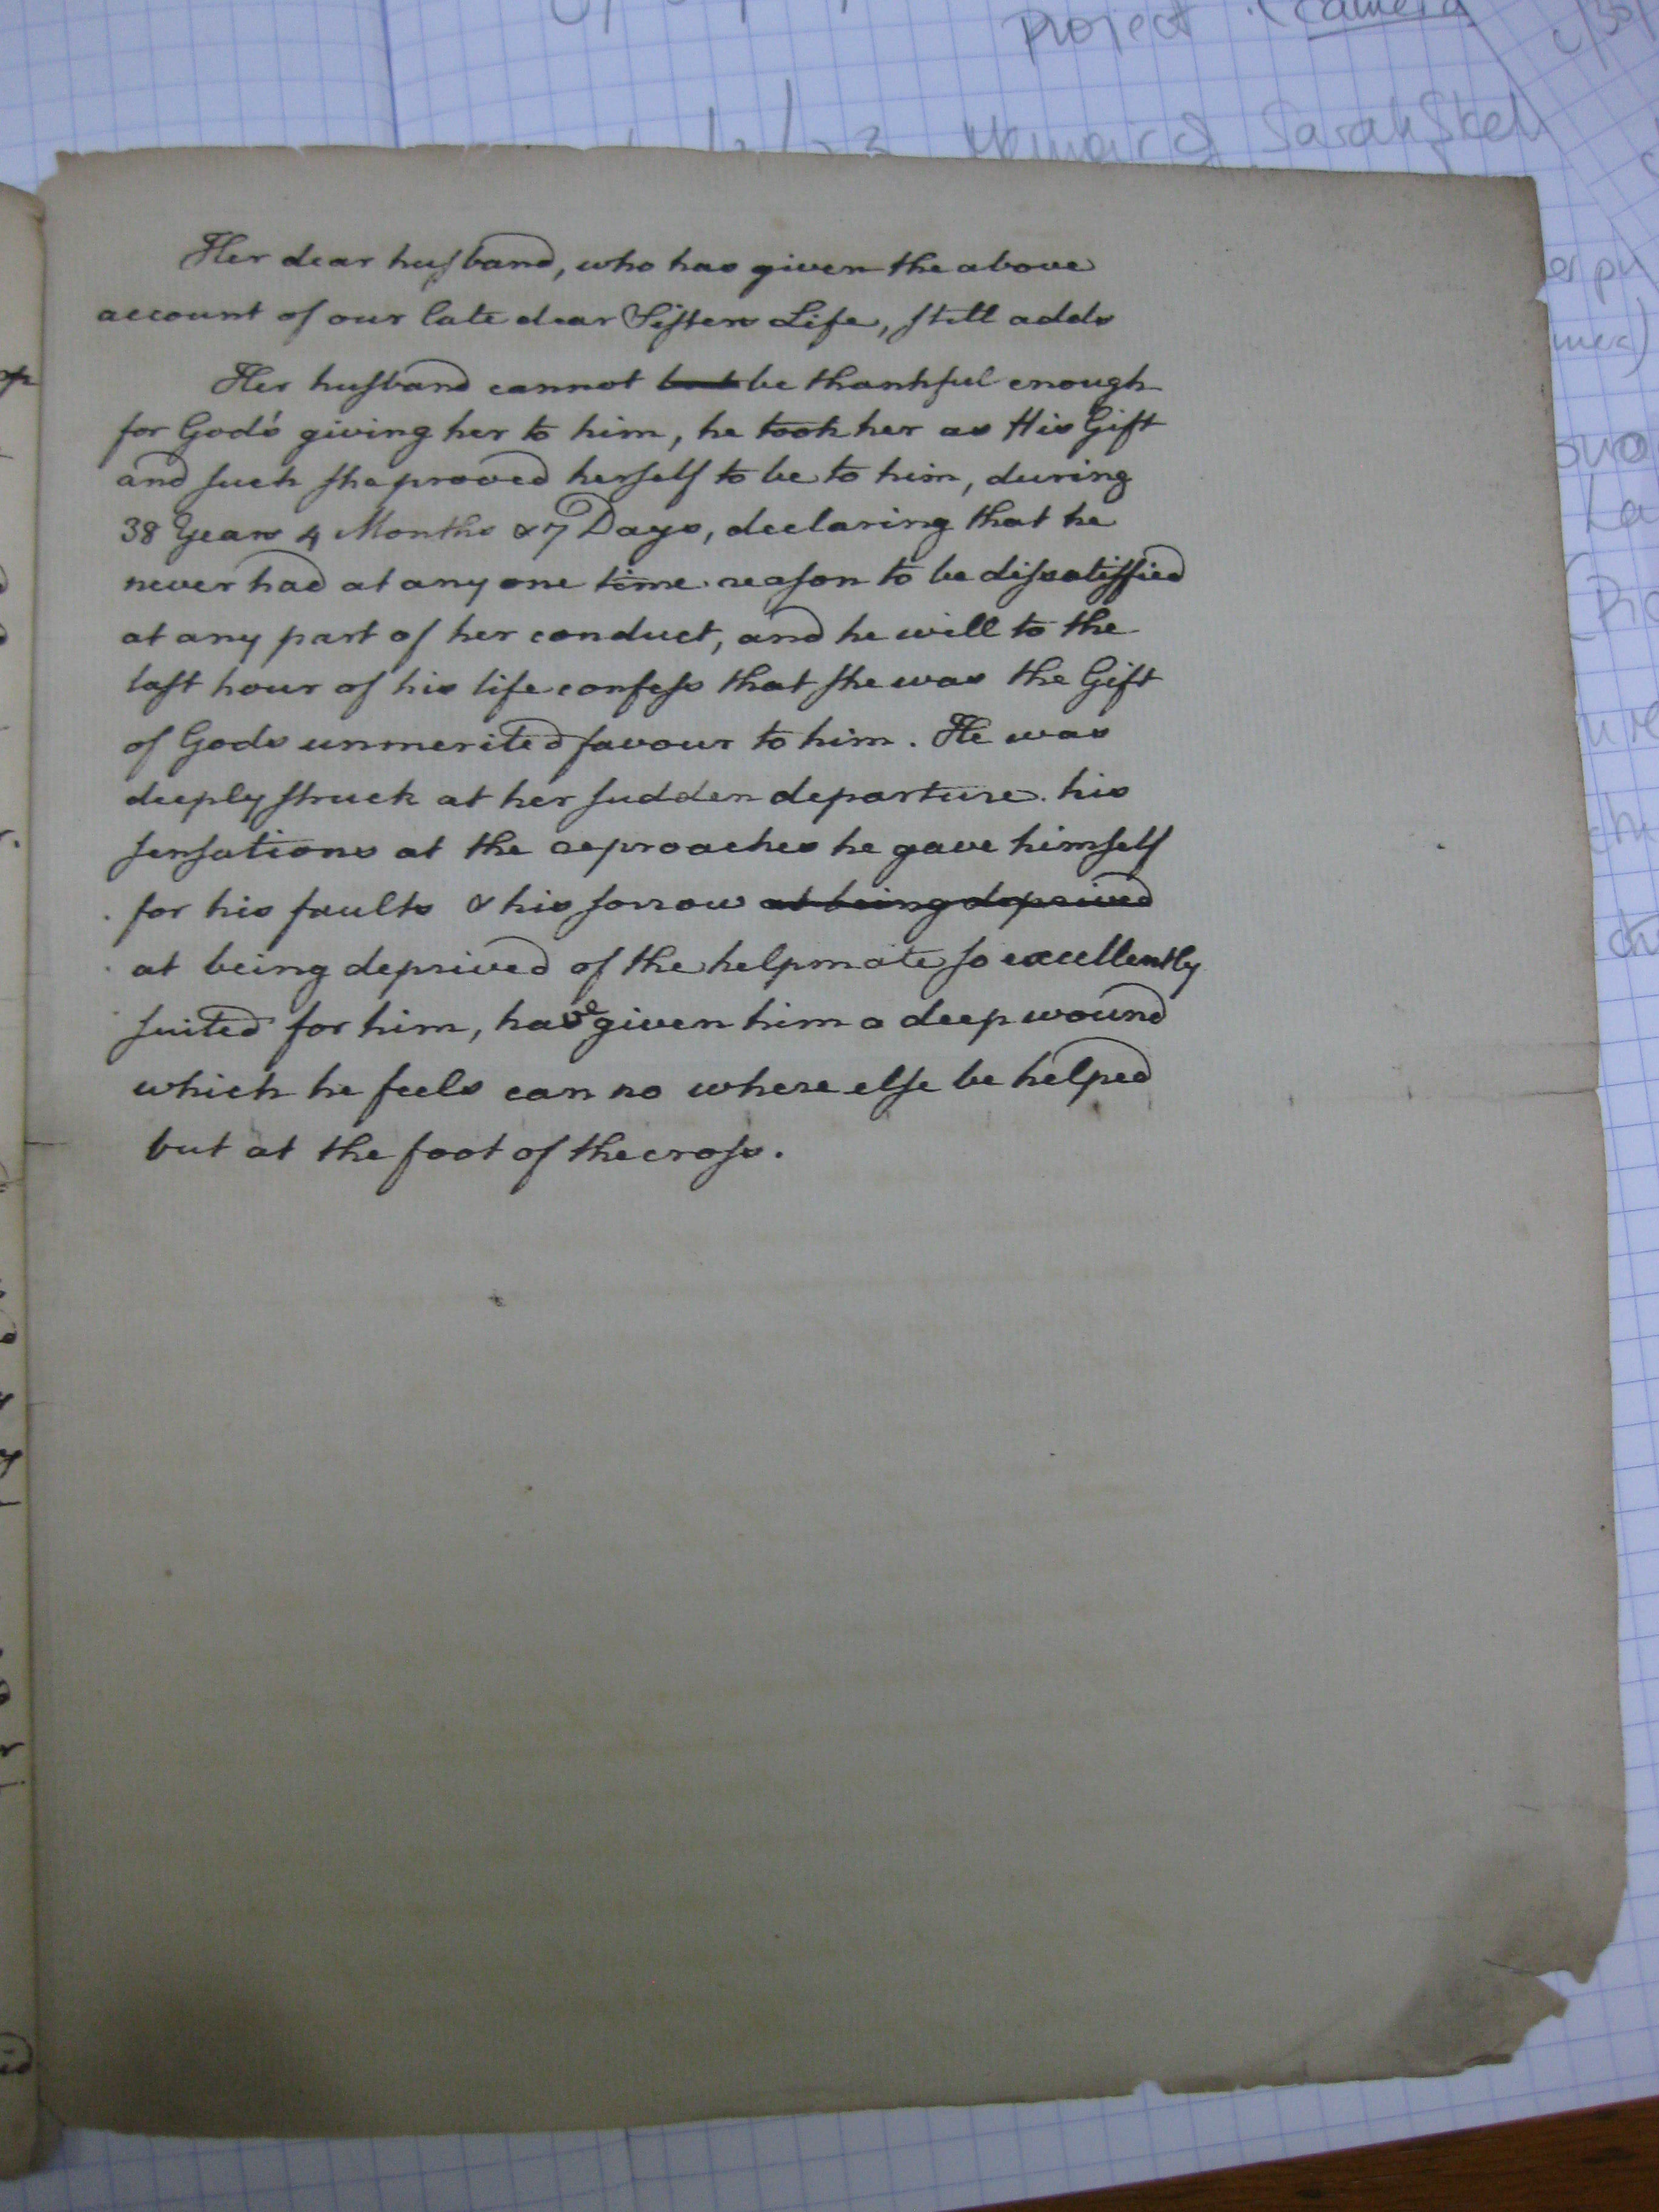 Project (camera
Memoir of Sarah
Her dear husband, who has given the above
account of our late dear Sisters Life, still adds
Her husband cannot but be thankful enough
for God's giving her to him, he took her as His Gift
and such she proved herself to be to him, during
38 Years 4 Months & 7 Days, declaring that he
never had at any one time reason to be dissatisfied
at any part of her conduct, and he will to the
last hour of his life confess that she was the Gift
of Gods unmerited favour to him. He was
deeply struck at her sudden departure. his
sensations at the reproaches he gave himself
for his faults & his sorrow at being deprived
at being deprived of the helpmate so excellently
suited for him, have given him a deep wound
which he feels can no where else be helped
but at the foot of the cross.